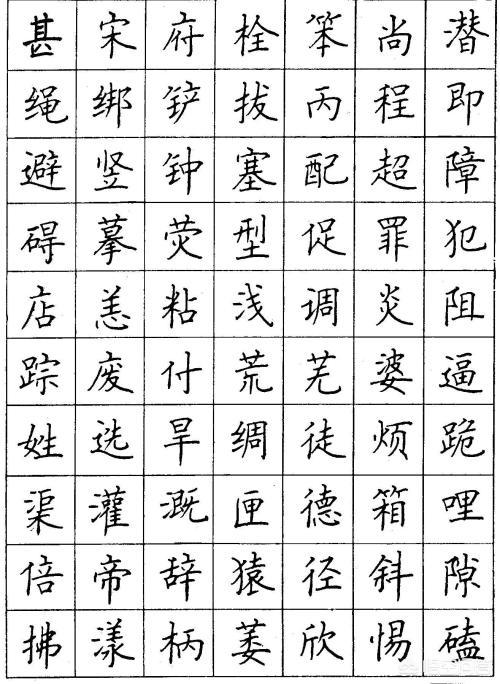 甚宋府栓笨尚潜
绳绑铲拔丙程即
避竖钟塞配超障
碍摹荧型促罪犯
店恙粘浅调炎阻
踪废什荒芜婆逼
姓选旱绸徒烦跪
渠灌溉匣德箱哩
倍帝辞猿径斜隙
拂漾柄萎欣惕磕